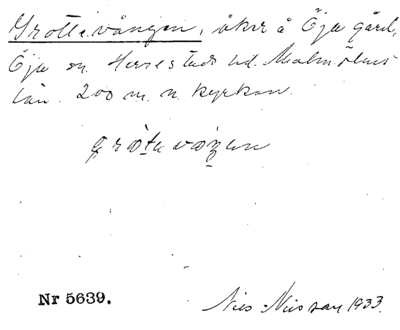 Grottevången, åker å Öja gård,
Öja sn. Herrestads hd. Malmöhus
län. 200 m. n. kyrkan.
Nr 5639.
Nils Nilsson 1933.